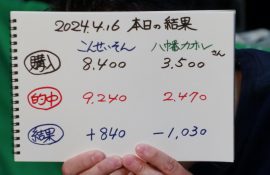 2024.4.16 本日の結果
こんせいそん 八幡カオル さん
購入 8,400 3,500
的中 9,240 2,470
結果 +840 -1,030